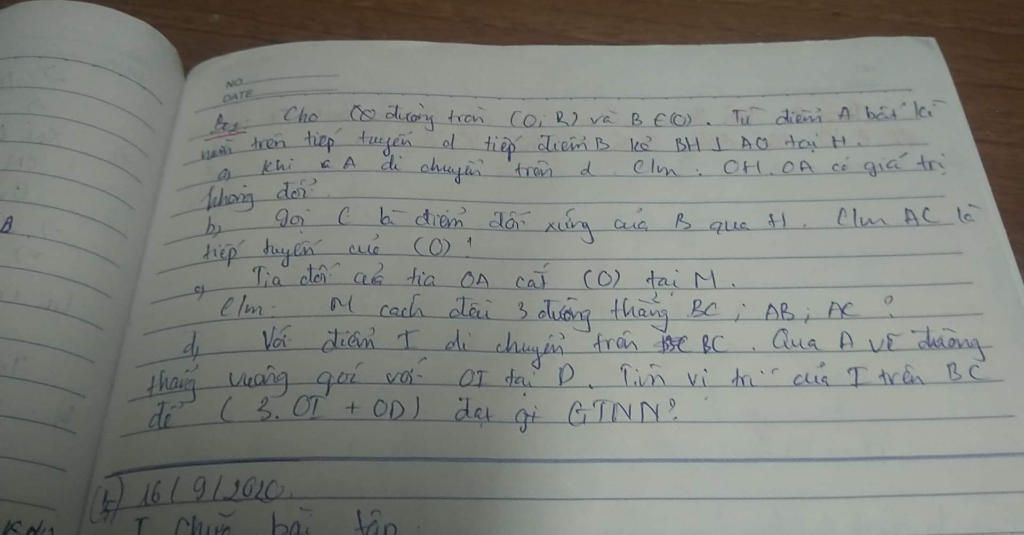 NO.
DATE
Bài: Cho đường tròn (O; R) và B ∈ (O). Từ điểm A bất kì
nằm trên tiếp tuyến d tiếp điểm B kẻ BH ⊥ AO tại H.
a, Khi A di chuyển trên d C/m: OH.OA có giá trị
không đổi.
b, Gọi C là điểm đối xứng của B qua H. C/m AC là
tiếp tuyến của (O)!
c, Tia đối của tia OA cắt (O) tại M.
C/m: M cách đều 3 đường thẳng BC; AB; AC?
d, Với điểm I di chuyển trên BC. Qua A vẽ đường
thẳng vuông góc với OI tại D. Tìm vị trí của I trên BC
để (3.OI + OD) đạt gt GTNN?
16/9/2020.
I Chữa bài tập
A